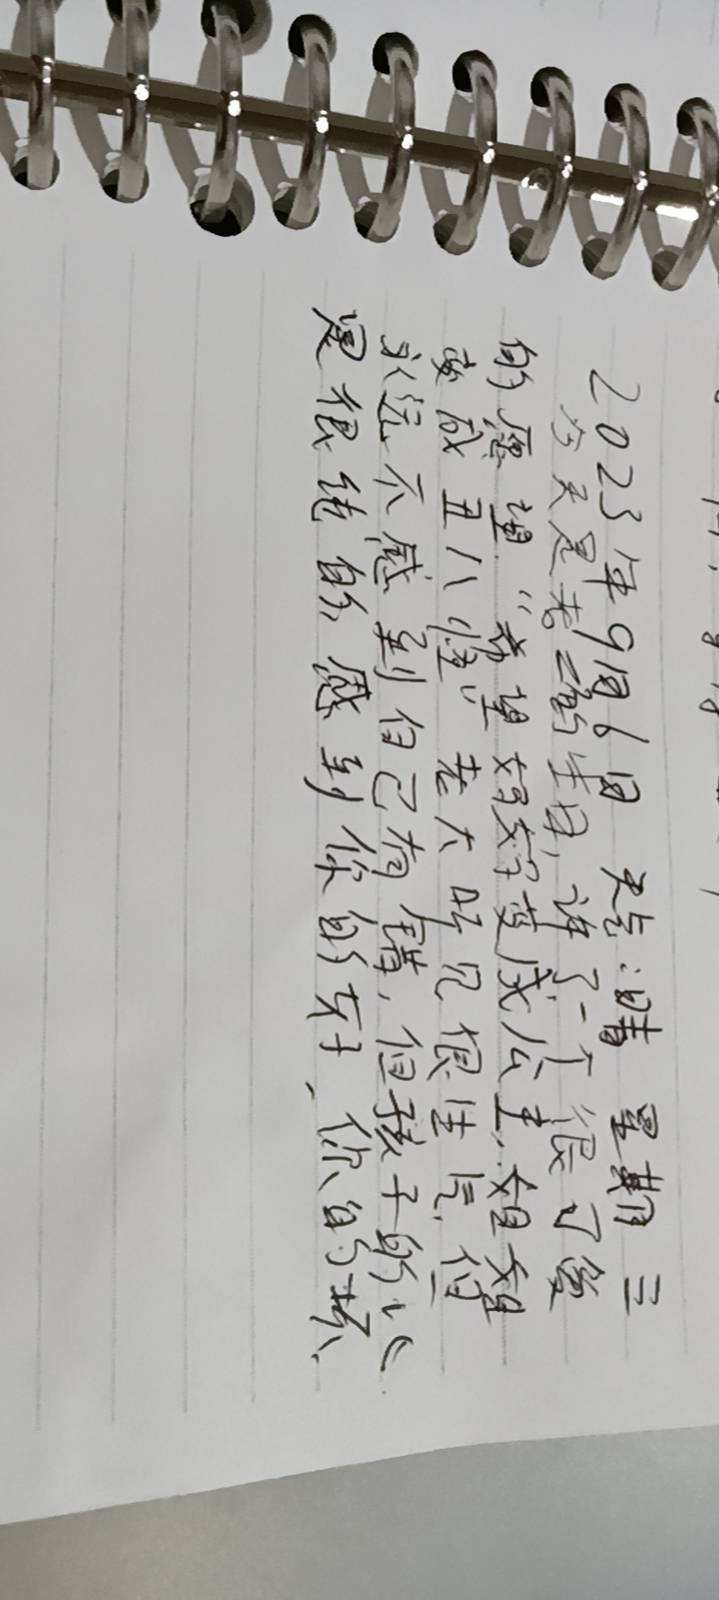 2023年9月6日 天气:晴 星期三
今天是老二的生日,许了一个很可爱
的愿望“希望妈妈变成公主,姐姐
变成丑八怪”老大听见很生气,但
永远不感到自己有错,但孩子的心
是很纯的感到你的好、你的坏、